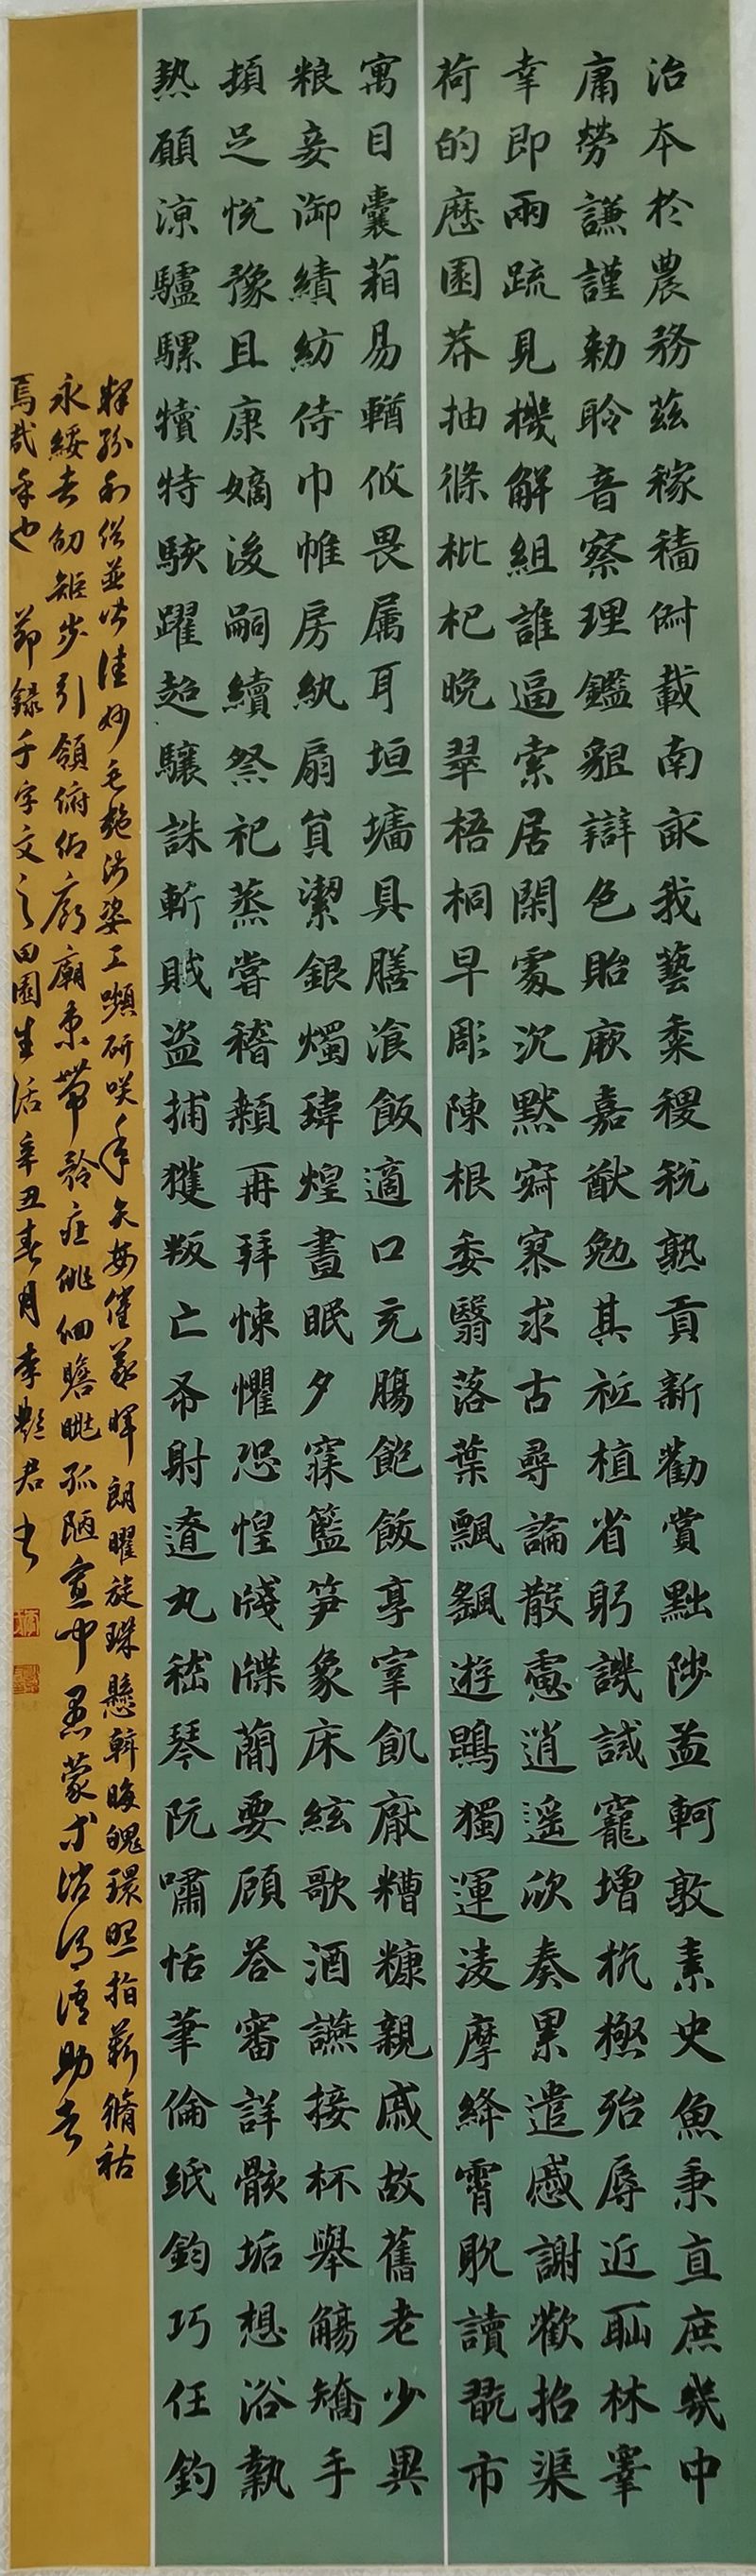 治本於農務茲稼穡俶載南畝我藝黍稷稅熟貢新勸賞黜陟孟軻敦素史魚秉直庶幾中
庸勞謙謹勅聆音察理鑑貌辯色貽厥嘉猷勉其祗植省躬譏誡寵增抗極殆辱近恥林睪
幸即兩疏見機解組誰逼索居閑處沉默寂寥求古尋論散慮逍遙欣奏累遣慼謝歡招渠
荷的歷園莽抽條枇杷晚翠梧桐早彫陳根委翳落葉飄颻遊鵾獨運凌摩絳霄耽讀翫市
寓目囊箱易輶攸畏屬耳垣牆具膳飡飯適口充腸飽飫享宰飢厭糟糠親戚故舊老少異
粮妾御績紡侍巾帷房紈扇員潔銀燭煒煌晝眠夕寐籃笋象床絃歌酒讌接杯舉觴矯手
頓足悅豫且康嫡後嗣續祭祀蒸嘗稽顙再拜悚懼恐惶牋牒簡要顧答審詳骸垢想浴執
熱願涼驢騾犢特駭躍超驤誅斬賊盜捕獲叛亡布射遼丸嵇琴阮嘯恬筆倫紙鈞巧任釣
釋紛利俗並皆佳妙毛施淑姿工嚬研咲年矢每催羲暉朗曜旋璣懸斡晦魄環照指薪脩祜
永綏吉劭矩步引領俯仰廊廟束帶矜莊徘徊瞻眺孤陋寡聞愚蒙等誚謂語助者
焉哉乎也 節錄千字文之田園生活辛丑春月李艷君书